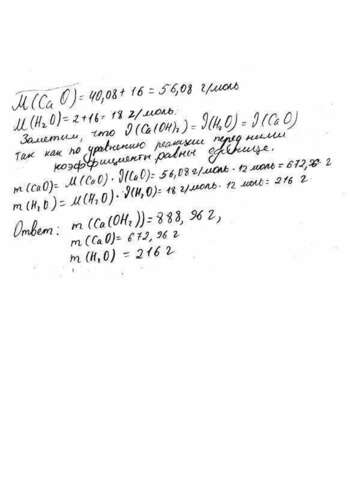 M(CaO) = 40,08 + 16 = 56,08 г/моль
M(H₂O) = 2+16 = 18 г/моль.
Заметим, что ν(Ca(OH)₂) = ν(H₂O) = ν(CaO)
так как по уравнению реакции перед ними
коэффициенты равны единице.
m(CaO) = M(CaO) · ν(CaO) = 56,08 г/моль · 12 моль = 672,96 г
m(H₂O) = M(H₂O) · ν(H₂O) = 18 г/моль · 12 моль = 216 г
Ответ: m(Ca(OH₂)) = 888,96 г,
m(CaO) = 672,96 г
m(H₂O) = 216 г